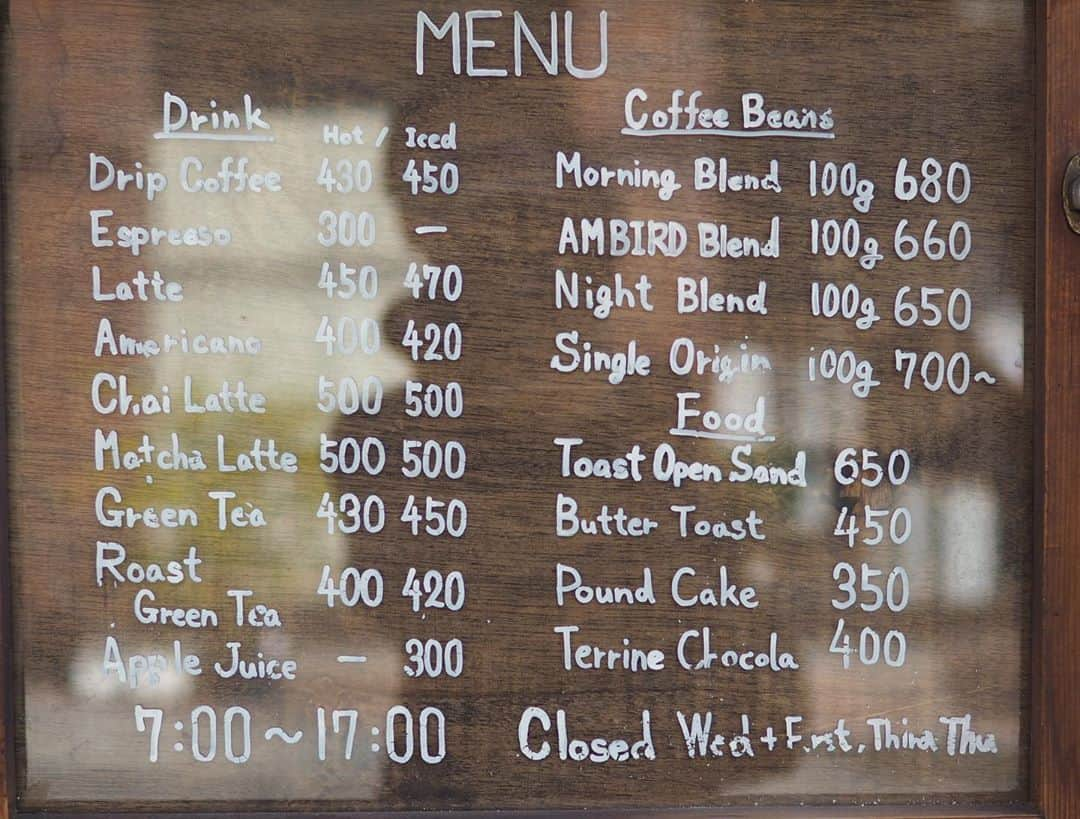 MENU
Drink
Hot / Iced
Drip Coffee 430 450
Espresso 300 —
Latte 450 470
Americano 400 420
Chai Latte 500 500
Matcha Latte 500 500
Green Tea 430 450
Roast
Green Tea 400 420
Apple Juice — 300
7:00~17:00
Coffee Beans
Morning Blend 100g 680
AMBIRD Blend 100g 660
Night Blend 100g 650
Single Origin 100g 700~
Food
Toast Open Sand 650
Butter Toast 450
Pound Cake 350
Terrine Chocola 400
Closed Wed + First, Third Thu